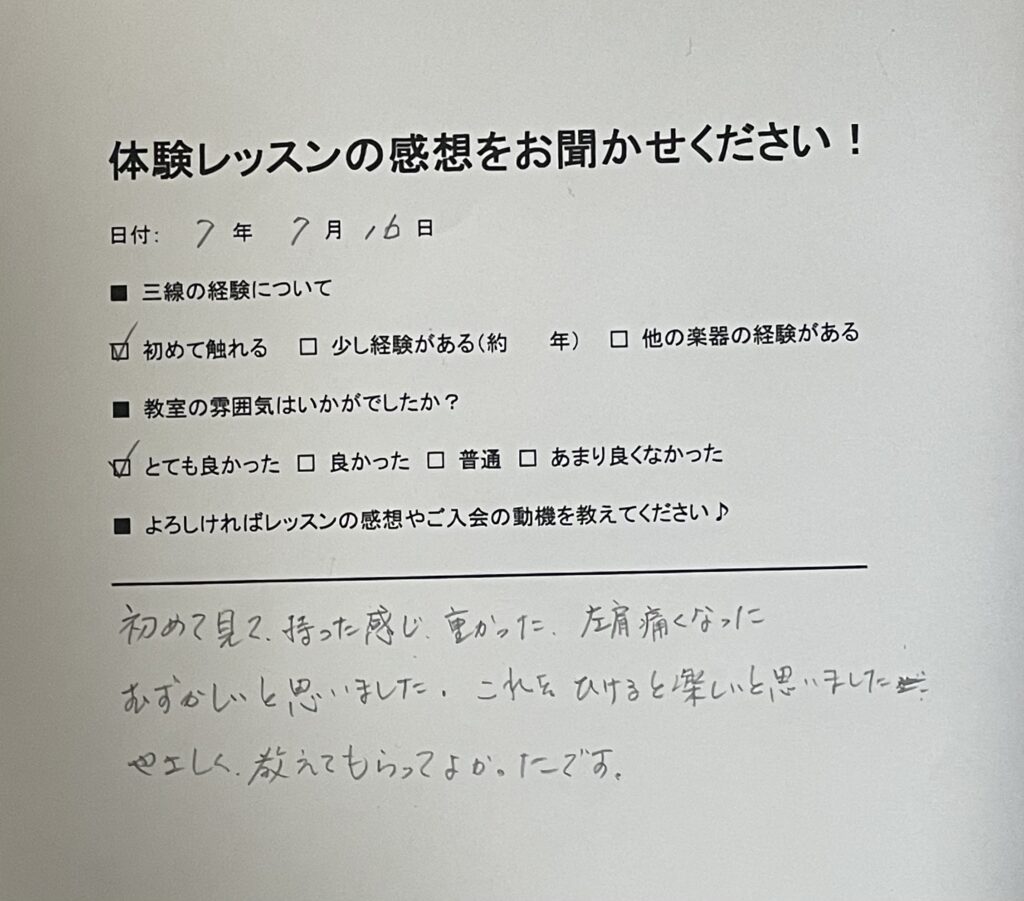 体験レッスンの感想をお聞かせください！
日付： 7 年 7 月 16 日
■ 三線の経験について
☑ 初めて触れる □ 少し経験がある（約 年） □ 他の楽器の経験がある
■ 教室の雰囲気はいかがでしたか？
☑ とても良かった □ 良かった □ 普通 □ あまり良くなかった
■ よろしければレッスンの感想やご入会の動機を教えてください♪
初めて見て、持った感じ、重かった、左肩痛くなった
むずかしいと思いました。これを ひけると楽しいと思いました
やさしく、教えてもらってよかったです。